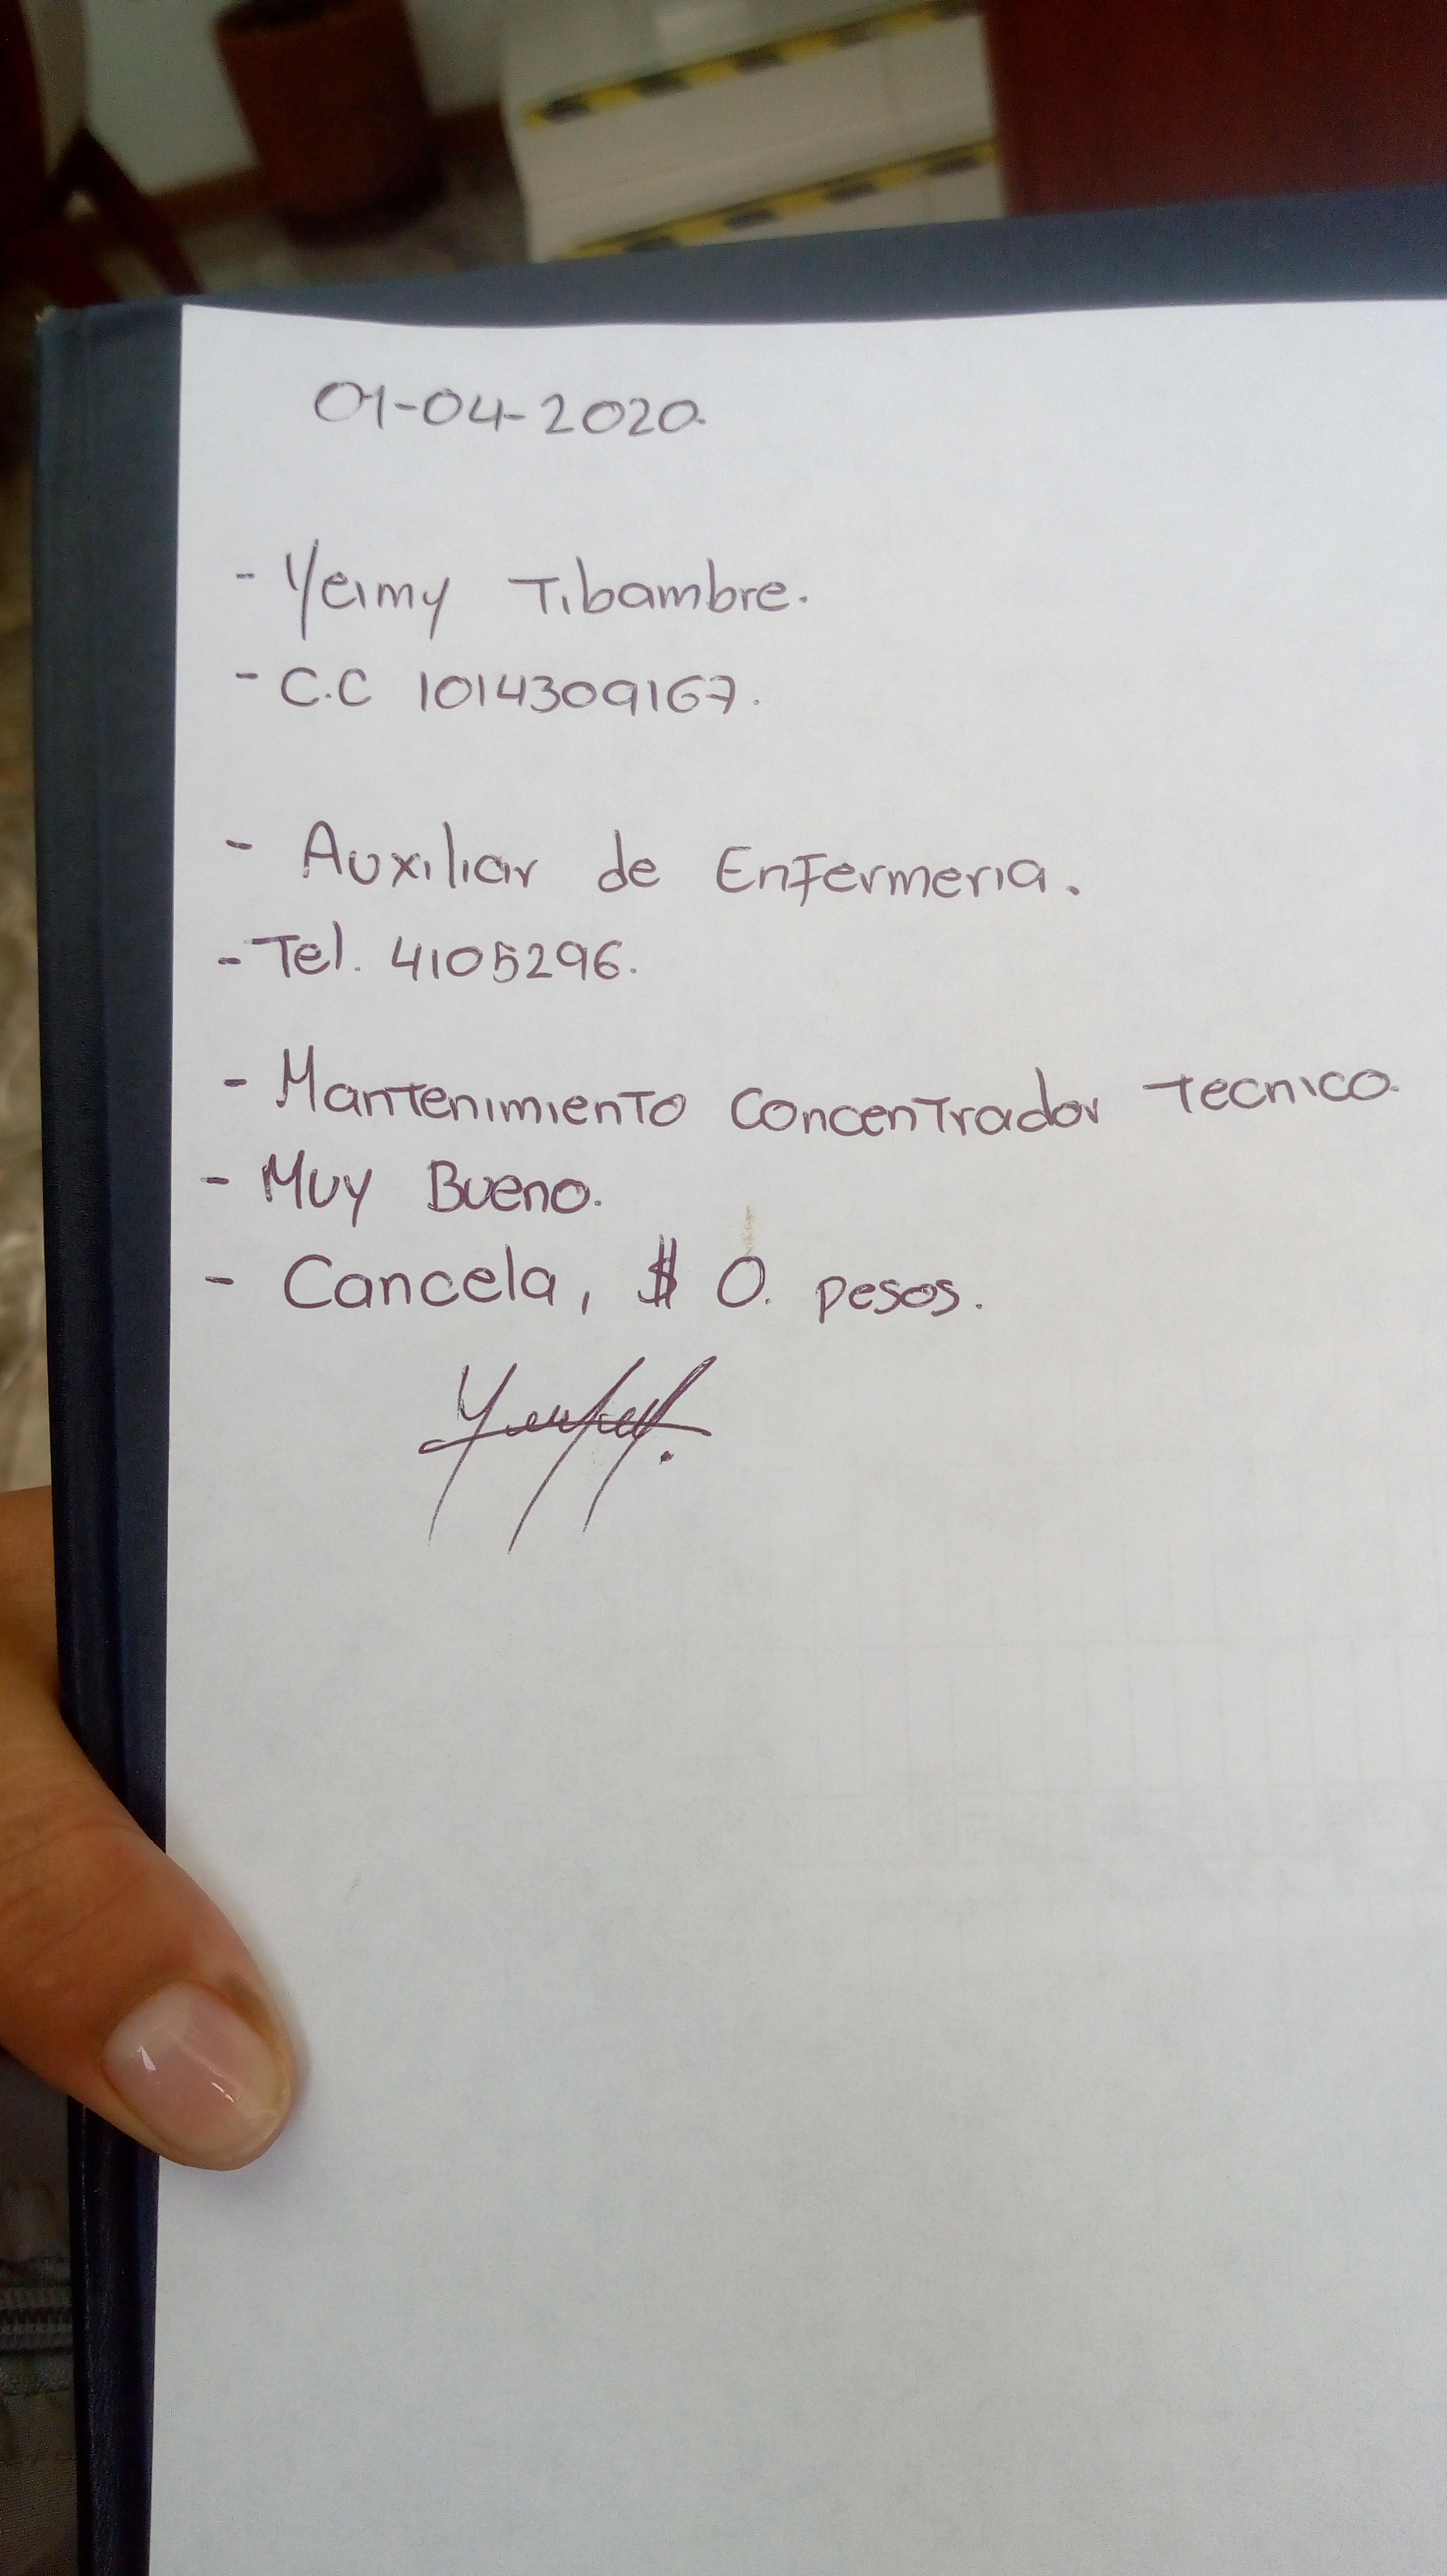 01-04-2020.
- Yeimy Tibambre.
- C.C 1014309167.
- Auxiliar de Enfermeria.
- Tel. 4105296.
- Mantenimiento Concentrador Tecnico.
- Muy Bueno.
- Cancela, $ 0. pesos.